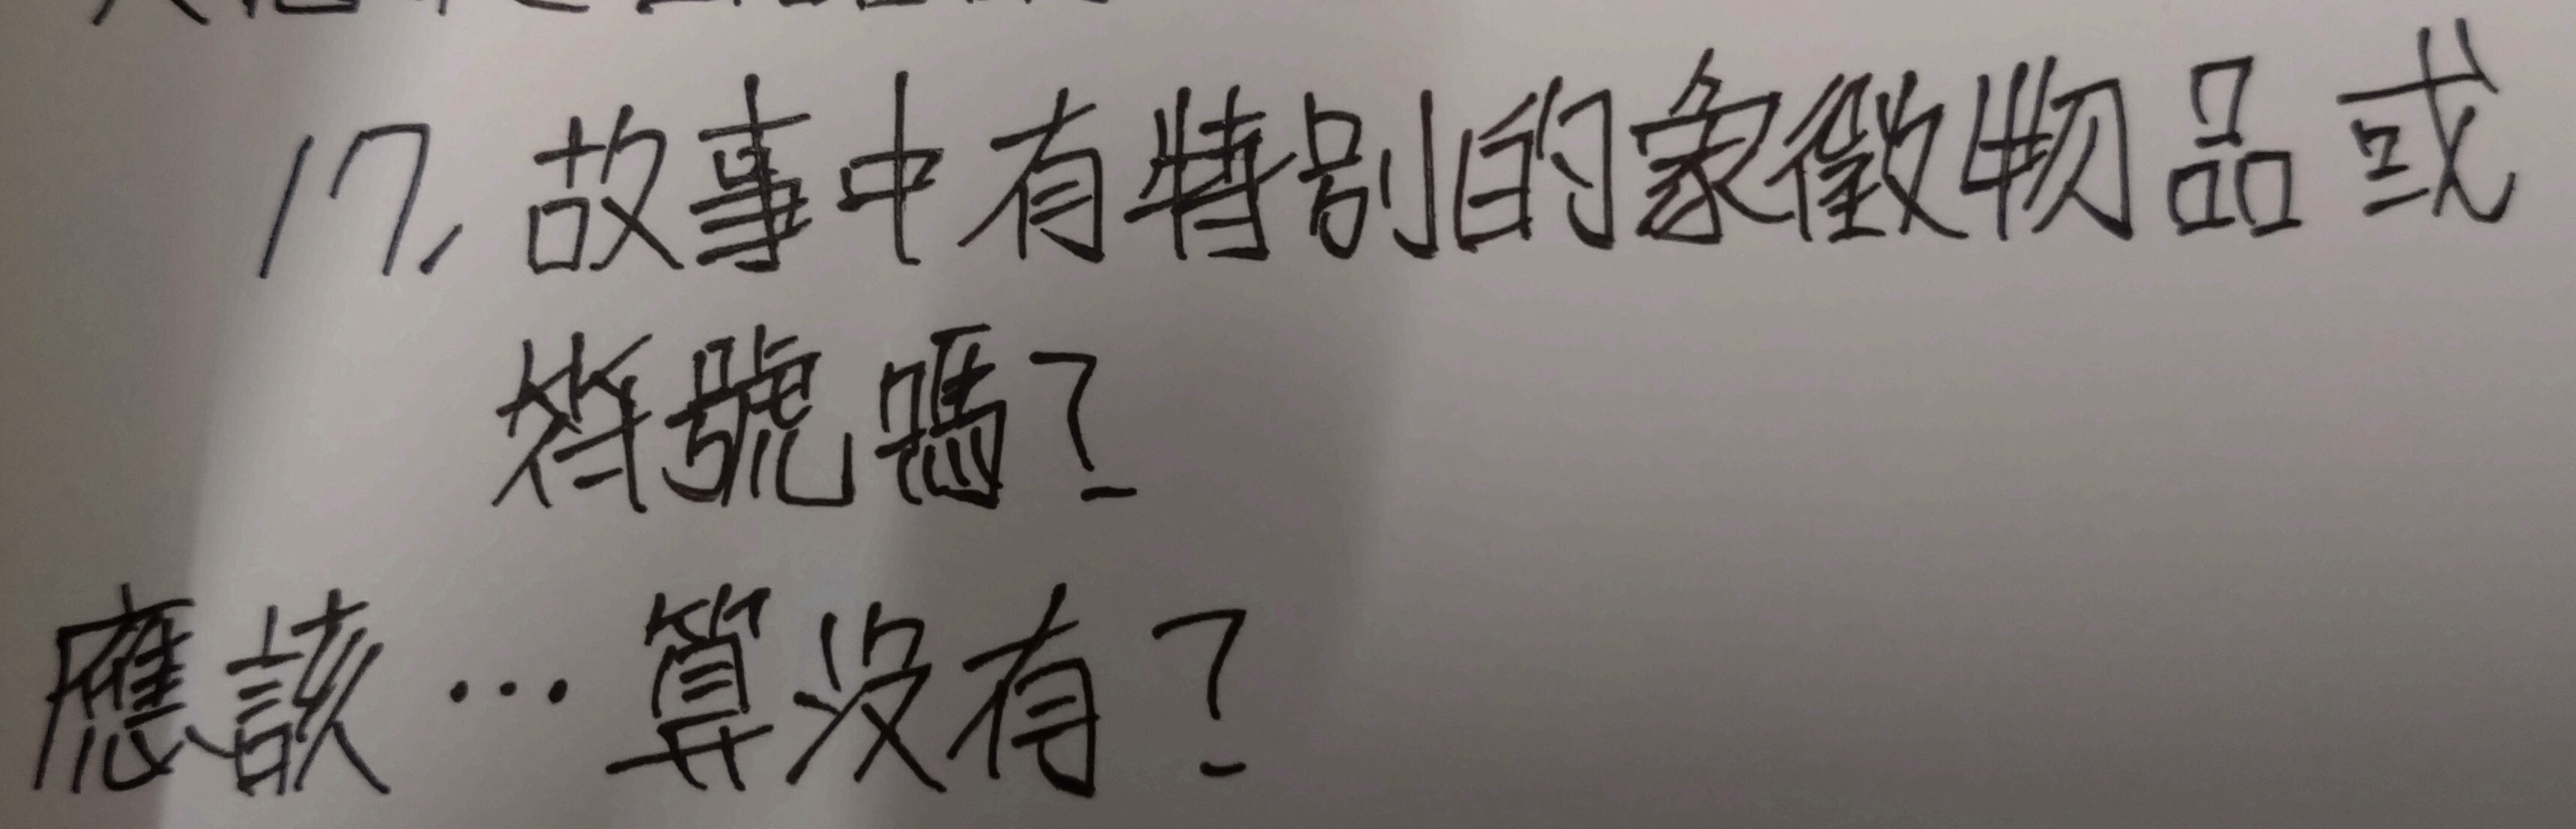 17. 故事中有特別的象徵物品或
符號嗎?
應該…算沒有?